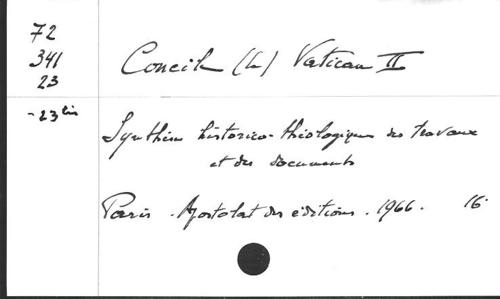 72
341
23
- 23 bis
Concile (le) Vatican II
Synthèse historico-théologique des travaux
et des documents
Paris . Apostolat des éditions . 1966 . 16°